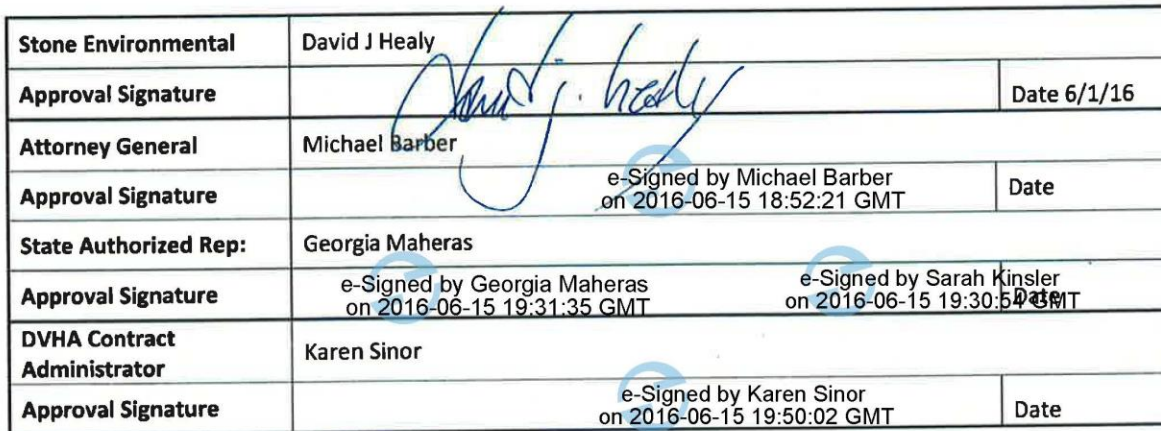 Stone Environmental David J Healy
Approval Signature David J. Healy Date 6/1/16
Attorney General Michael Barber
Approval Signature e-Signed by Michael Barber
on 2016-06-15 18:52:21 GMT Date
State Authorized Rep: Georgia Maheras
Approval Signature e-Signed by Georgia Maheras
on 2016-06-15 19:31:35 GMT e-Signed by Sarah Kinsler
on 2016-06-15 19:30:54 GMT Date
DVHA Contract
Administrator Karen Sinor
Approval Signature e-Signed by Karen Sinor
on 2016-06-15 19:50:02 GMT Date